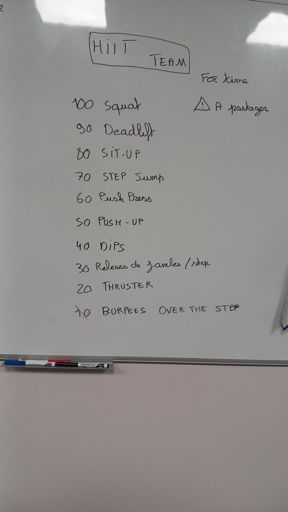 HiiT
TEAM
For time
⚠ A partager
100 Squat
90 Deadlift
80 SiT-UP
70 STEP Jump
60 Push Press
50 PUSH-UP
40 DiPs
30 Relevés de jambes / step
20 THRUSTER
10 BURPEES OVER THE STEP